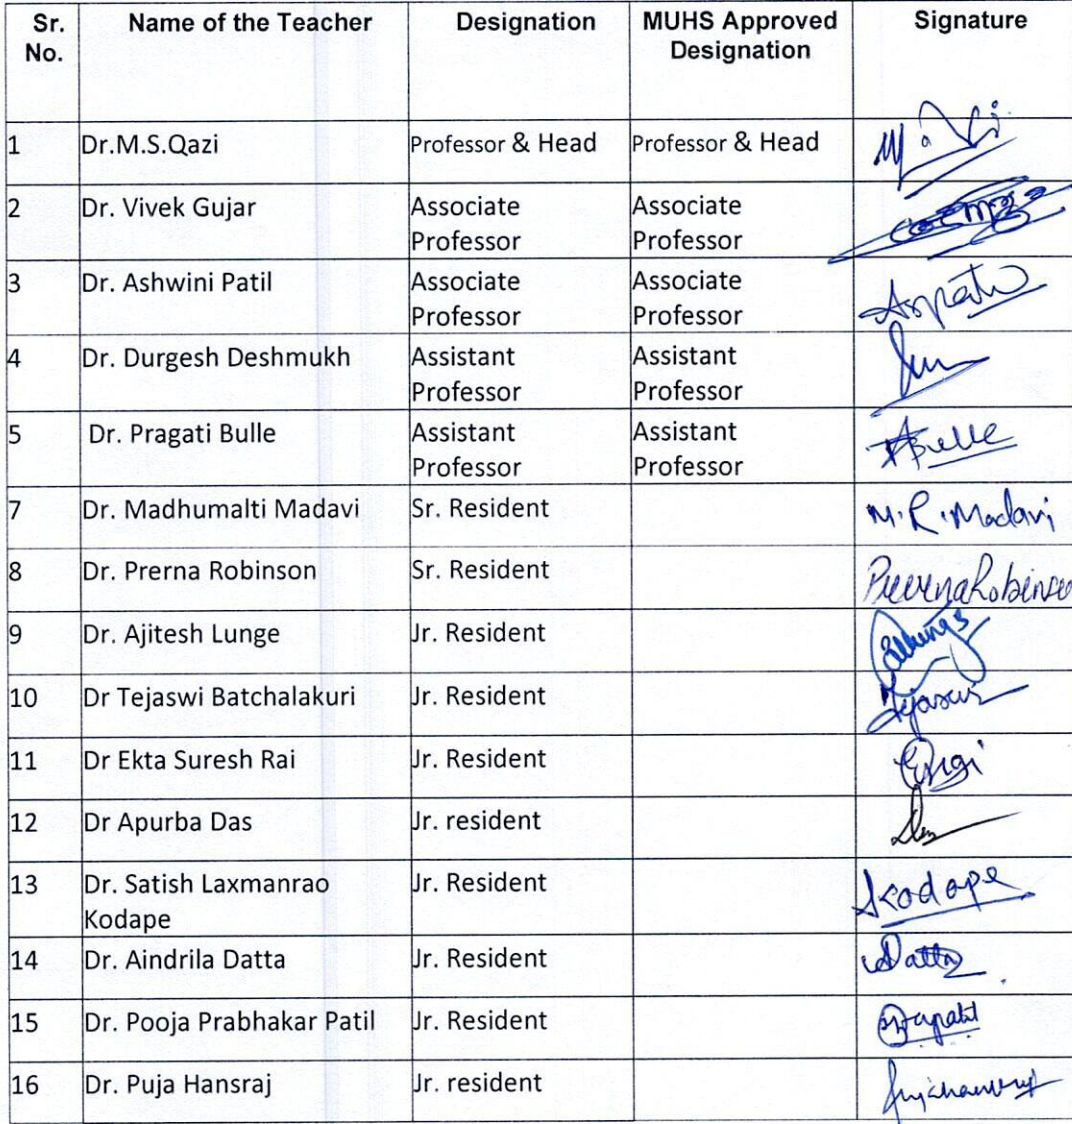 Sr. No. Name of the Teacher Designation MUHS Approved Designation Signature
1 Dr.M.S.Qazi Professor & Head Professor & Head
2 Dr. Vivek Gujar Associate Professor Associate Professor
3 Dr. Ashwini Patil Associate Professor Associate Professor
4 Dr. Durgesh Deshmukh Assistant Professor Assistant Professor
5 Dr. Pragati Bulle Assistant Professor Assistant Professor
7 Dr. Madhumalti Madavi Sr. Resident M.R.Madavi
8 Dr. Prerna Robinson Sr. Resident
9 Dr. Ajitesh Lunge Jr. Resident
10 Dr Tejaswi Batchalakuri Jr. Resident
11 Dr Ekta Suresh Rai Jr. Resident
12 Dr Apurba Das Jr. resident
13 Dr. Satish Laxmanrao Kodape Jr. Resident Skodape
14 Dr. Aindrila Datta Jr. Resident
15 Dr. Pooja Prabhakar Patil Jr. Resident
16 Dr. Puja Hansraj Jr. resident